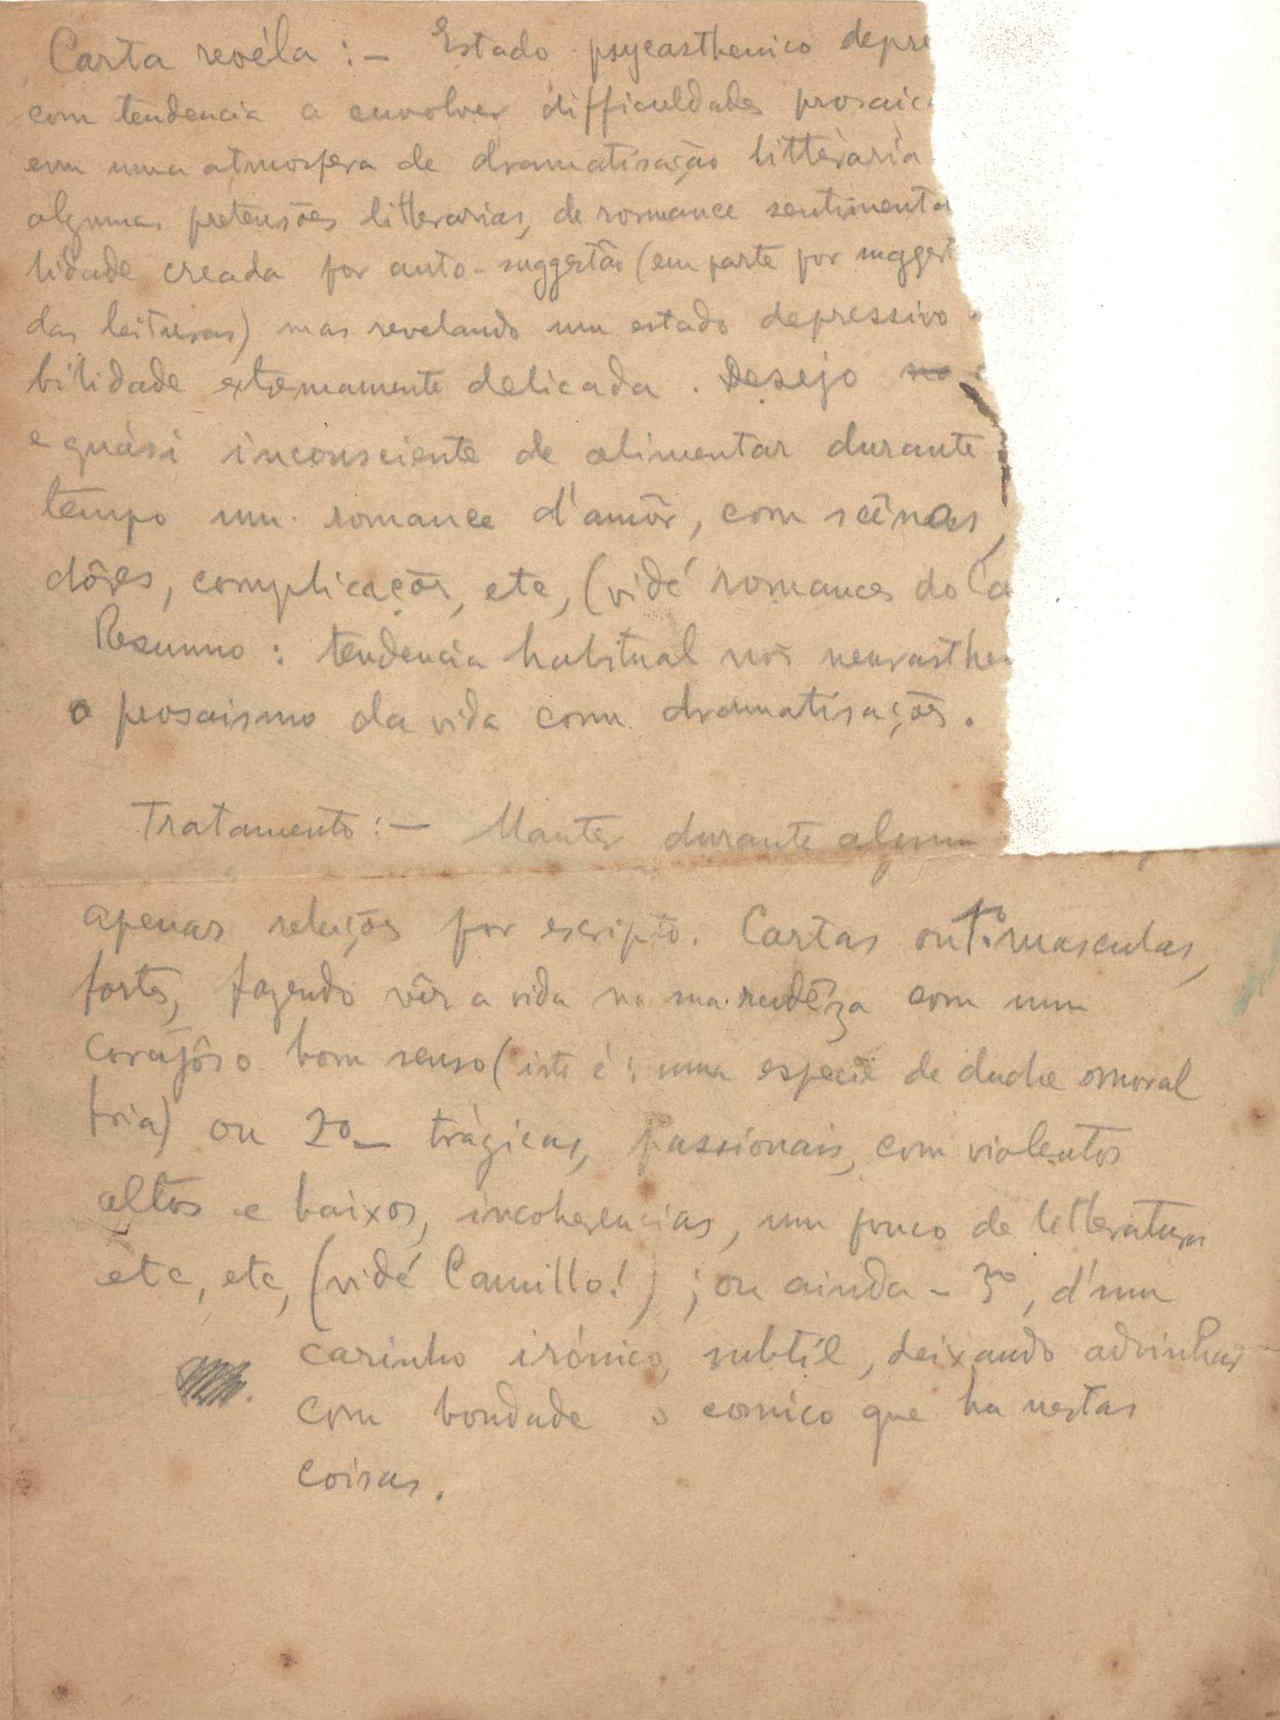 Carta revéla :— Estado psycasthenico depre
com tendencia a envolver difficuldades prosaic
em uma atmosfera de dramatisação littèrària
algumas pretensões litterarias, de romance sentimenta
lidade creada por auto-suggestão (em parte por sugges
das leituras) mas revelando um estado depressivo
bilidade extremamente delicada. Desejo
e quási inconsciente de alimentar durante
tempo um romance d'amôr, com scênas,
dôres, complicações, etc, (vidé romances do Ca
Resumo : tendencia habitual nos neurasthe
o prosaismo da vida com dramatisações.
Tratamento :— Manter durante algum
apenas relações por escripto. Cartas ou 1º masculas,
fortes, fazendo vêr a vida na sua rudêza com um
corajôso bom senso (isto é : uma especie de duche moral
fria) ou 2º — trágicas, passionais, com violentos
altos e baixos, incoherencias, um pouco de litteratura
etc, etc, (vidé Camillo!) ; ou ainda - 3º, d'um
carinho irónico, subtíl, deixando advinhar
com bondade o comico que ha nestas
coisas.